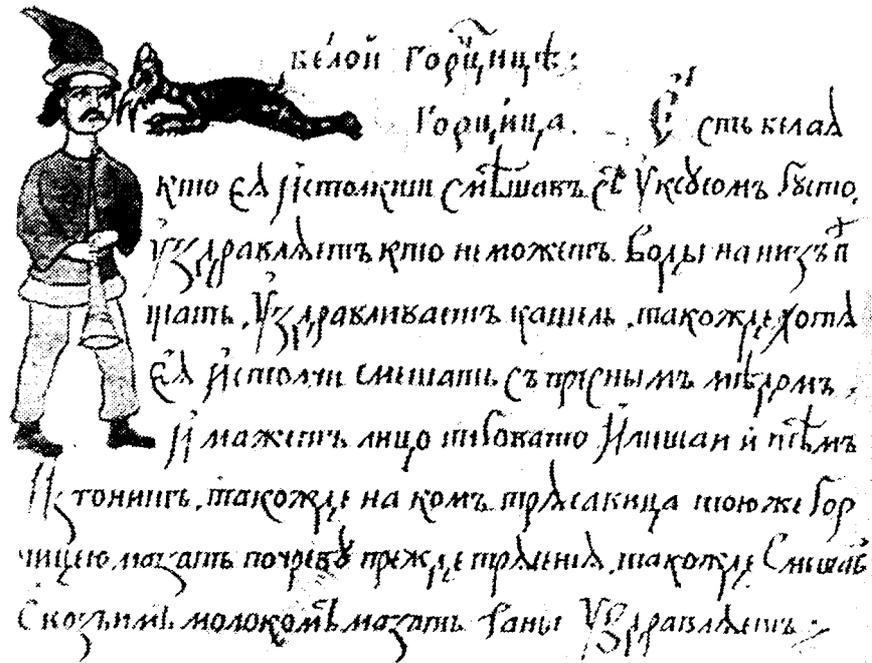 белой горчицѣ:
горчица. Есть белая
кто ея истолкши смѣшавъ съ уксусомъ густо,
уздравляетъ кто неможетъ воды на низъ п
щать, уздравливаетъ кашель, такожде хотя
ея истолчи смешать съ преснымъ мѣдомъ,
и мажетъ лицо ли и лишаи и тѣмъ
изгонитъ, такожде на комъ трясавица тоюже гор
чицею мазать по чреву прежде трясения, такожде смешавъ
с козьимъ молокомъ мазать раны уздравляетъ: